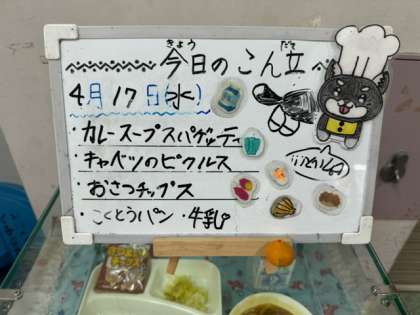 今日のこん立
きょう だて
4月17日(水)
・カレースープスパゲッティ
・キャベツのピクルス
・おさつチップス
・こくとうパン・牛乳